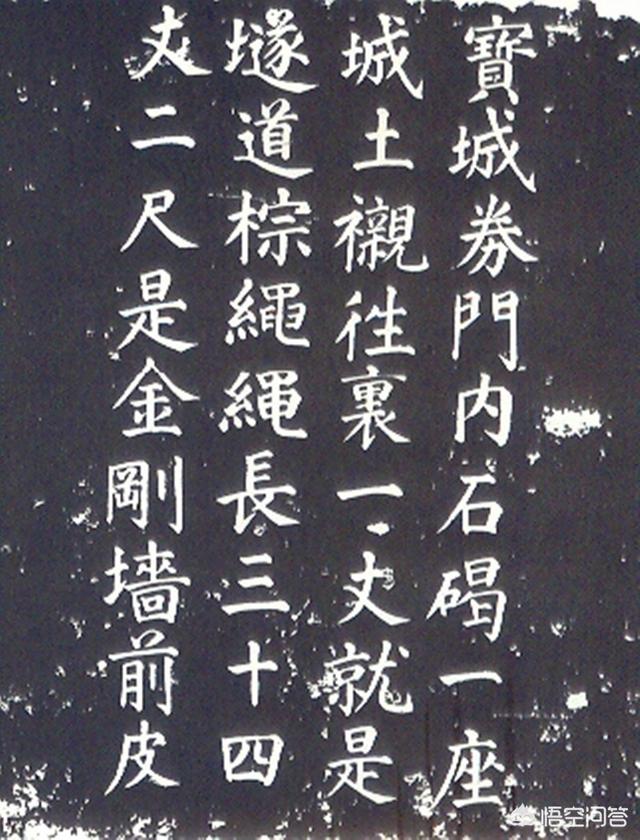 寶城券門内石碣一座
城土襯徃裏一丈就是
墜道棕繩繩長三十四
丈二尺是金剛墻前皮
悟空问答